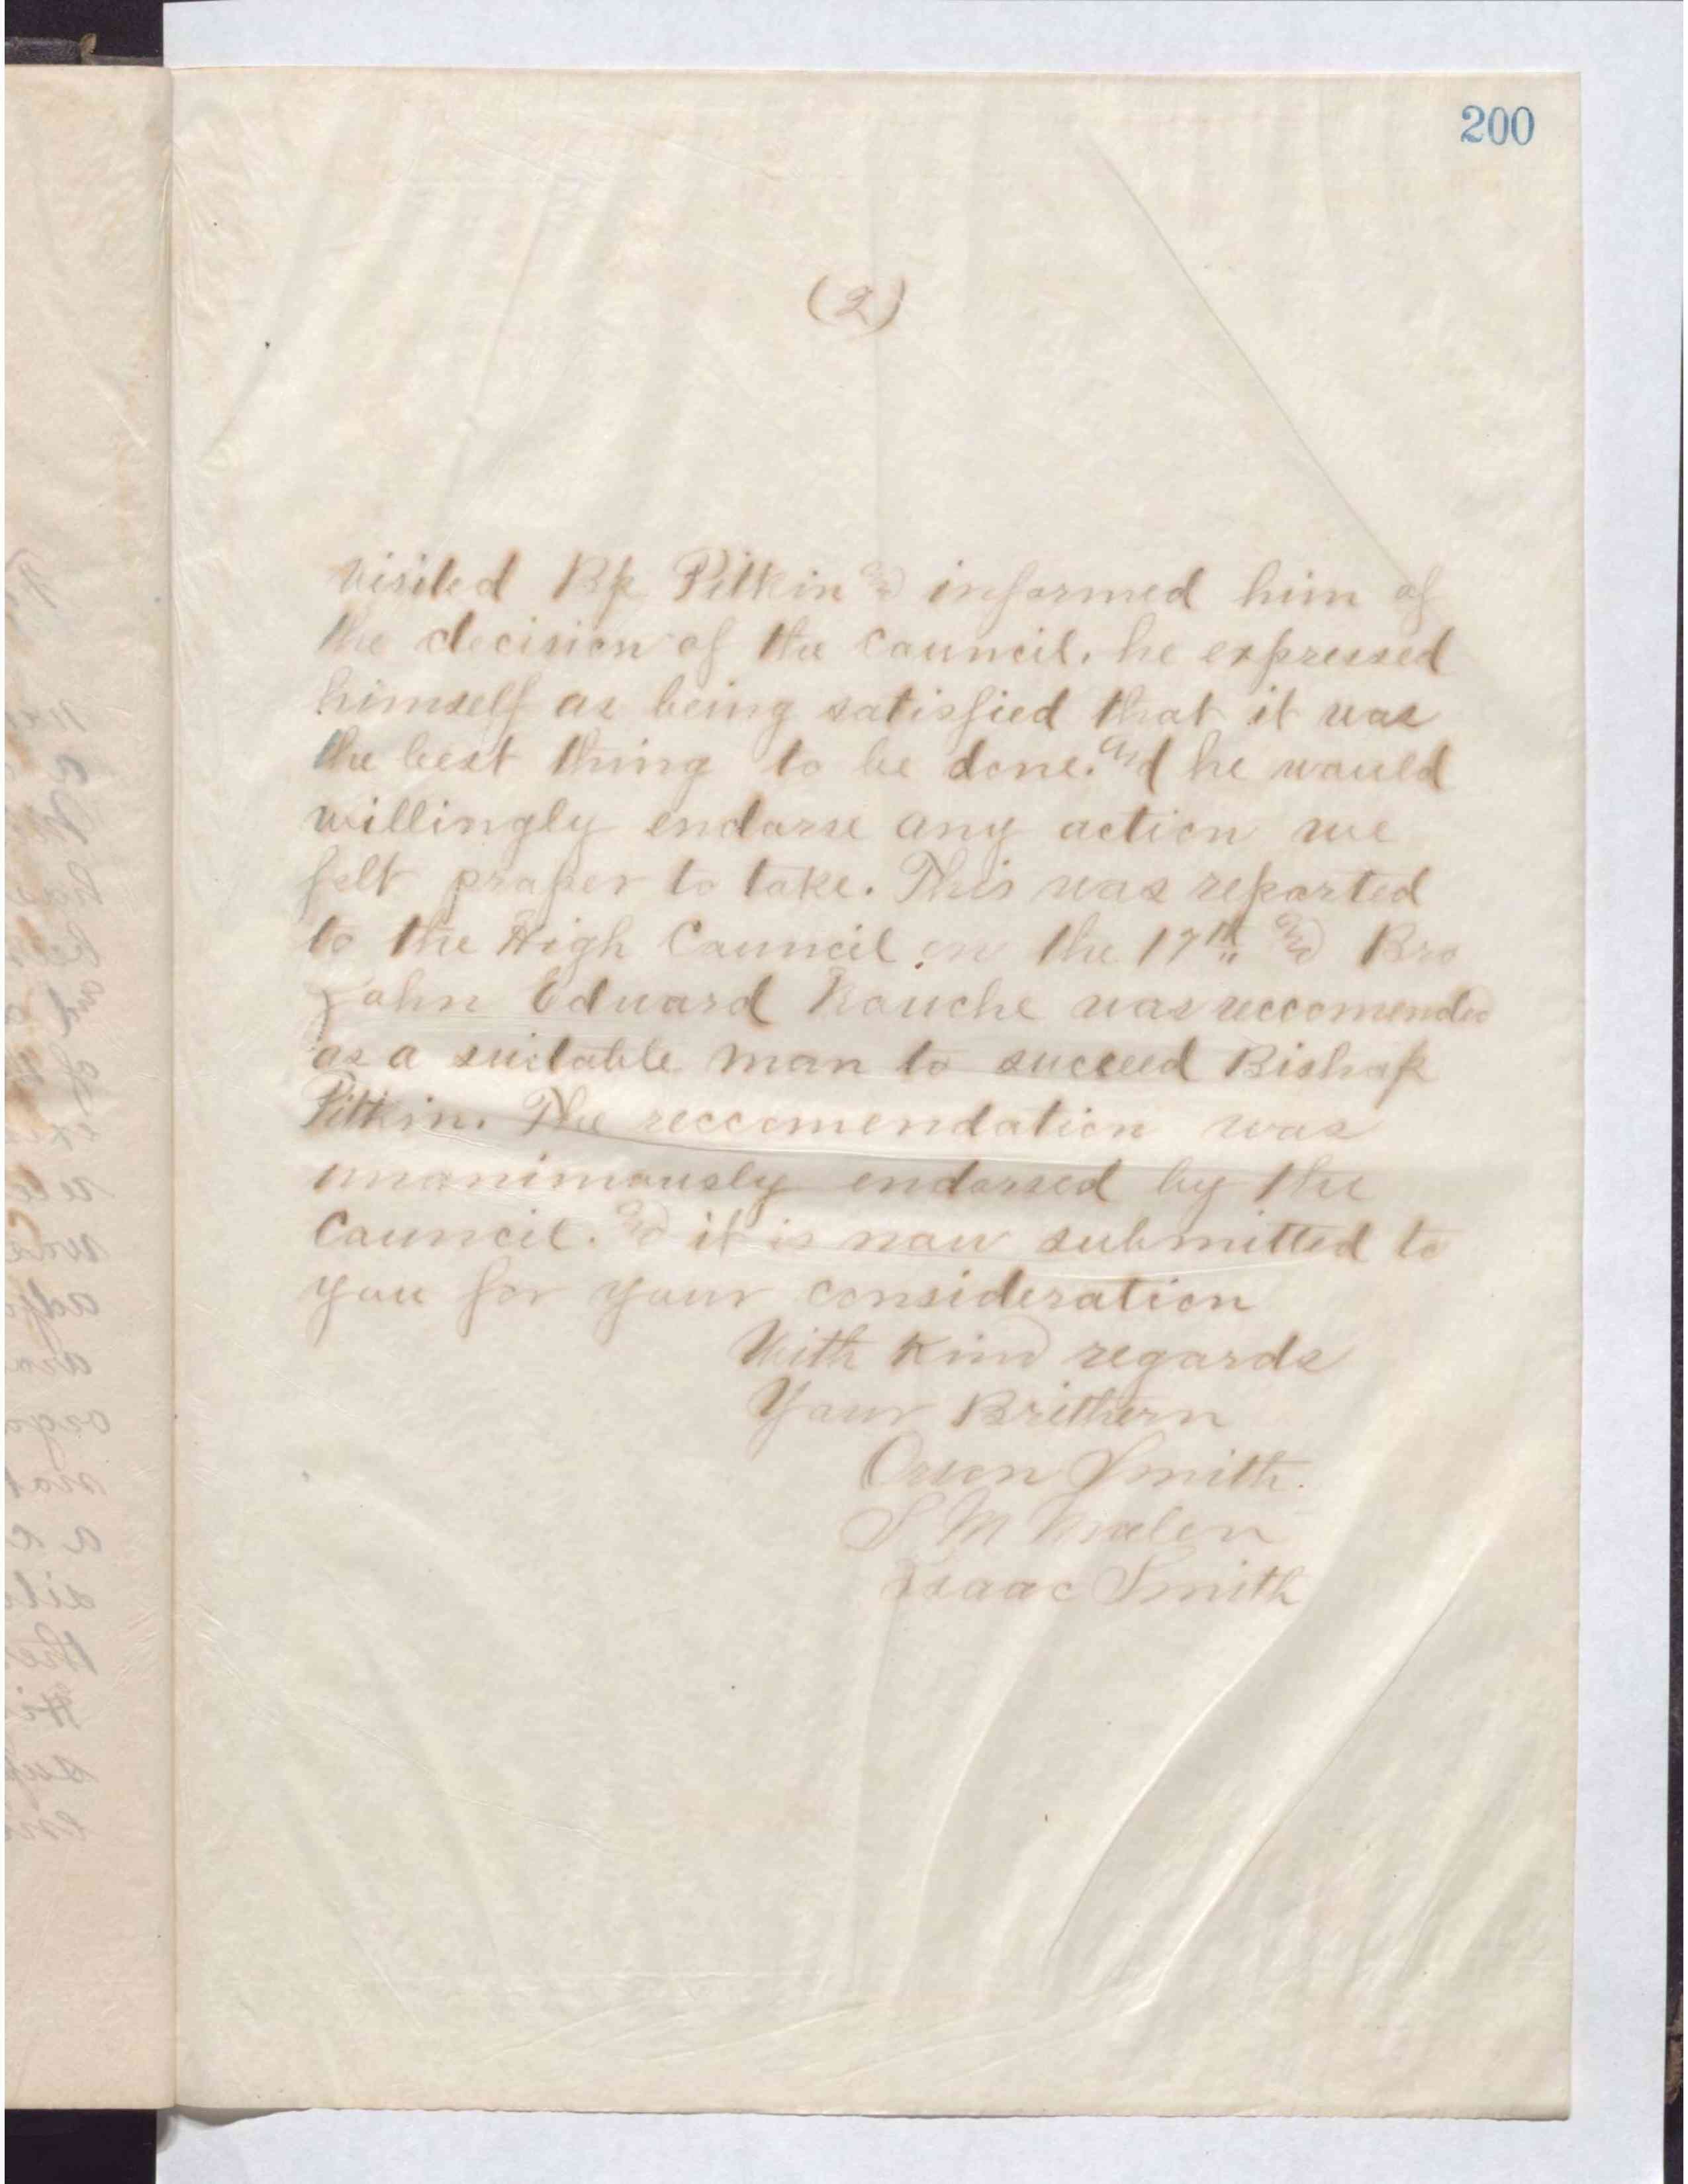 200
(2)
visited Bp Pitkin and informed him of
the decision of the Council. he expressed
himself as being satisfied that it was
the best thing to be done. and he would
willingly endorse any action we
felt proper to take. This was reported
to the High Council on the 17th and Bro
John Edward Rouche was reccomended
as a suitable man to succeed Bishop
Pitkin. The reccomendation was
unanimously endorsed by the
Council. and it is now submitted to
you for your consideration
With Kind regards
Your Brithern
Orson Smith.
S M Molen
Isaac Smith